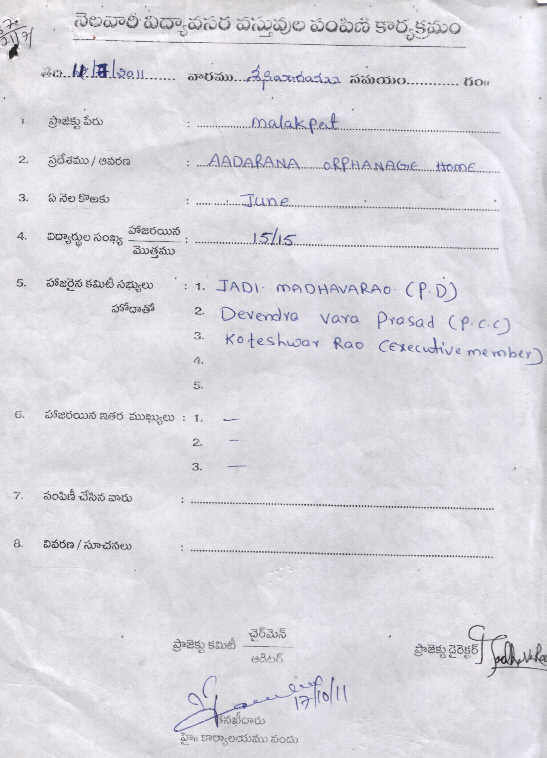 నెలవారీ విద్యావసర వస్తువుల పంపిణి కార్యక్రమం
తేది.. 11/7/2011 ....... వారము.. శనివారము సమయం............ గం॥
1. ప్రాజెక్టు పేరు : malakpet
2. ప్రదేశము / ఆవరణ : AADARANA ORPHANAGE HOME
3. ఏ నెల కొరకు : June
4. విద్యార్థుల సంఖ్య హాజరయిన / మొత్తము : 15/15
5. హాజరైన కమిటీ సభ్యులు : 1. JADI. MADHAVARAO. (P.D)
హోదాతో 2. Devendra vara Prasad (P.C.C)
3. Koteshwar Rao (Executive member)
4.
5.
6. హాజరయిన ఇతర ముఖ్యులు : 1. —
2. –
3. —
7. పంపిణీ చేసిన వారు :
8. వివరణ / సూచనలు :
ప్రాజెక్టు కమిటీ చైర్‌మెన్ / ఆడిటర్
ప్రాజెక్టు డైరెక్టర్
17/10/11
తనఖీదారు
హై॥ కార్యాలయము నందు